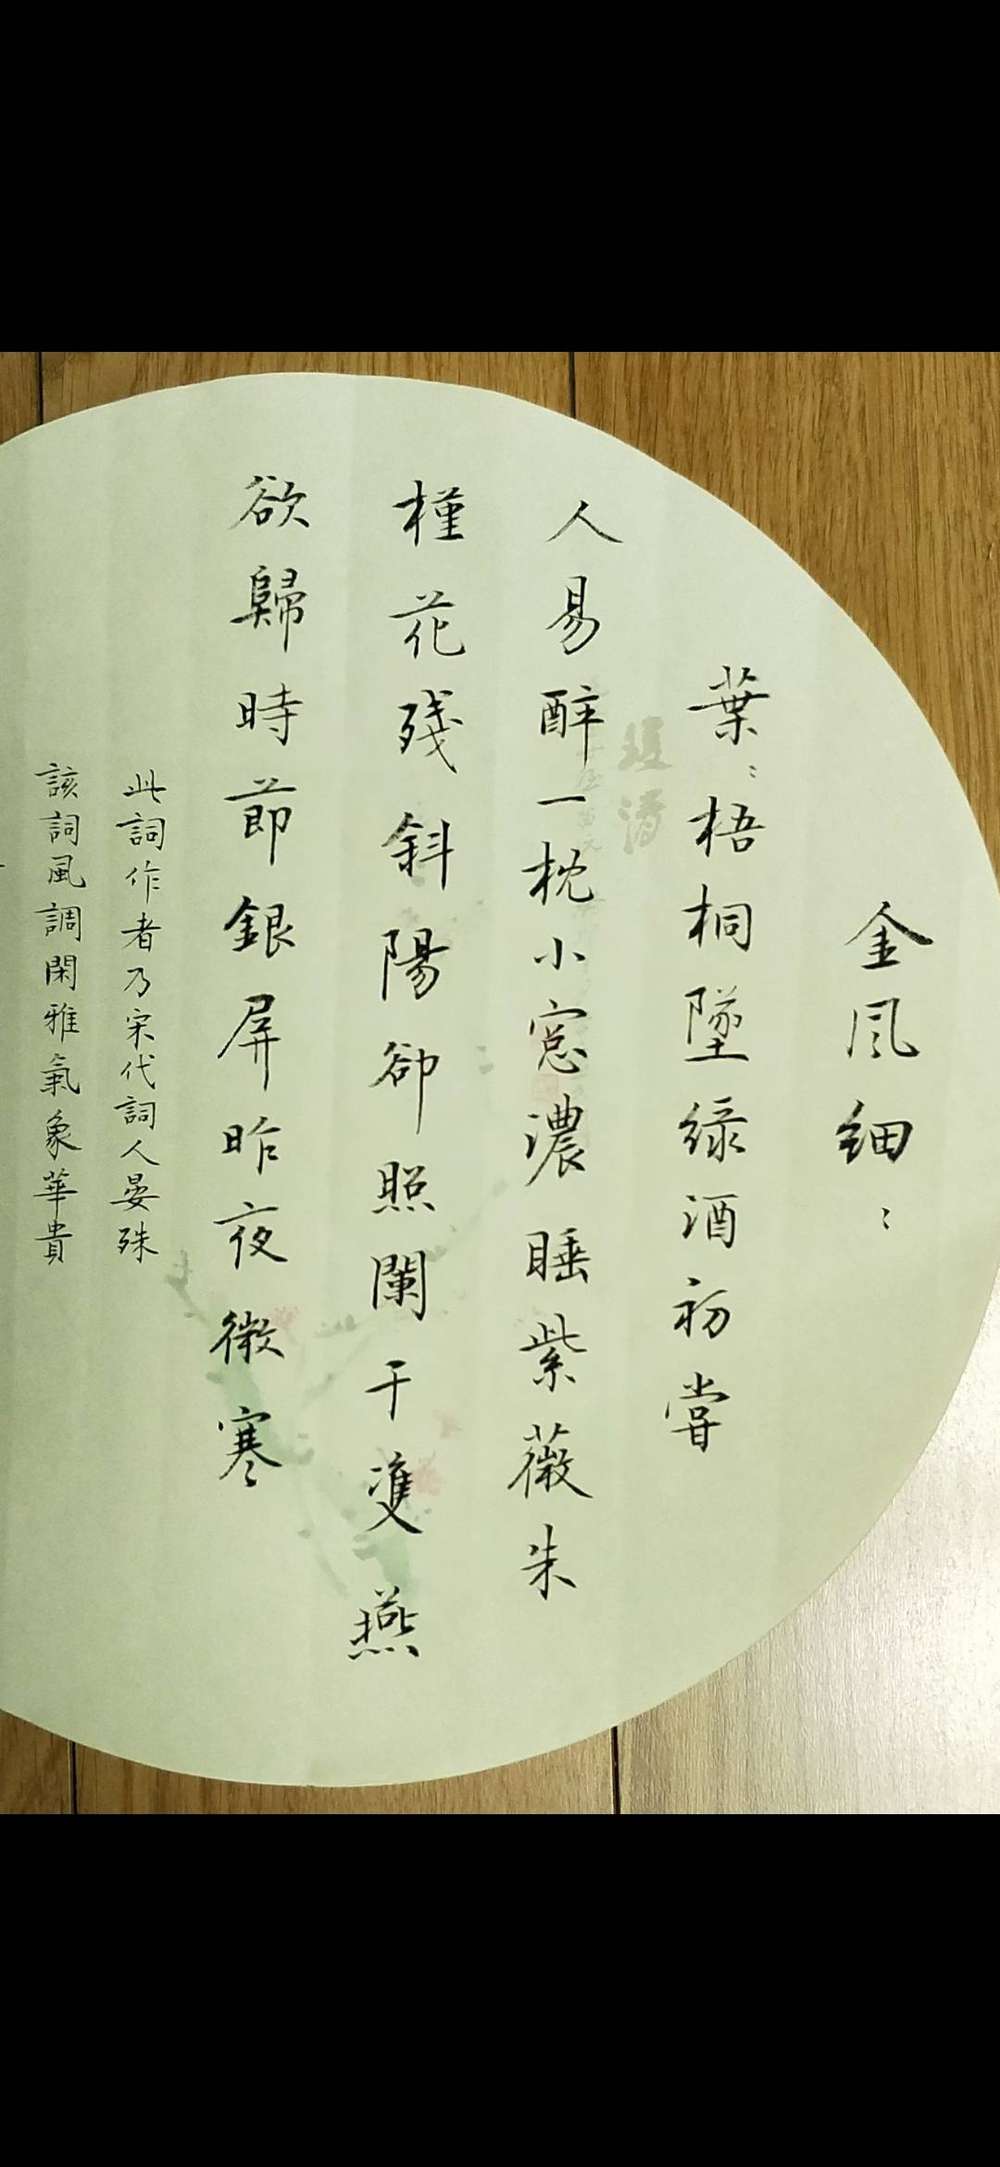 金風細〻
葉〻梧桐墜綠酒初嘗
人易醉一枕小窓濃睡紫薇朱
槿花殘斜陽卻照闌干雙燕
欲歸時節銀屏昨夜微寒
此詞作者乃宋代詞人晏殊
該詞風調閑雅氣象華貴